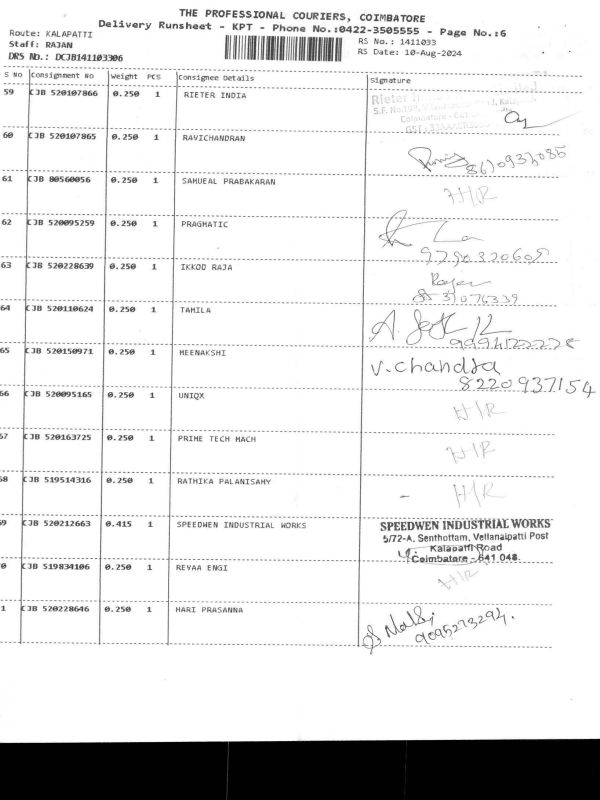 THE PROFESSIONAL COURIERS, COIMBATORE
Delivery Runsheet - KPT - Phone No.:0422-3505555 - Page No.:6
Route: KALAPATTI
Staff: RAJAN
DRS No.: DCJB141103306
RS No.: 1411033
RS Date: 10-Aug-2024
S No Consignment No Weight PCS Consignee Details Signature
59 CJB 520107866 0.250 1 RIETER INDIA
60 CJB 520107865 0.250 1 RAVICHANDRAN
61 CJB 80560056 0.250 1 SAMUEAL PRABAKARAN H/R
62 CJB 520095259 0.250 1 PRAGMATIC
63 CJB 520228639 0.250 1 IKKOD RAJA
64 CJB 520110624 0.250 1 TAMILA
65 CJB 520150971 0.250 1 MEENAKSHI V. chandra
8220937154
66 CJB 520095165 0.250 1 UNIQX H/R
67 CJB 520163725 0.250 1 PRIME TECH MACH H/R
68 CJB 519514316 0.250 1 RATHIKA PALANISAMY - H/R
69 CJB 520212663 0.415 1 SPEEDWEN INDUSTRIAL WORKS SPEEDWEN INDUSTRIAL WORKS
5/72-A, Senthottam, Vellanaipatti Post
Kalapatti Road
Coimbatore - 641 048.
0 CJB 519834106 0.250 1 REVAA ENGI H/R
1 CJB 520228646 0.250 1 HARI PRASANNA
9095273294.